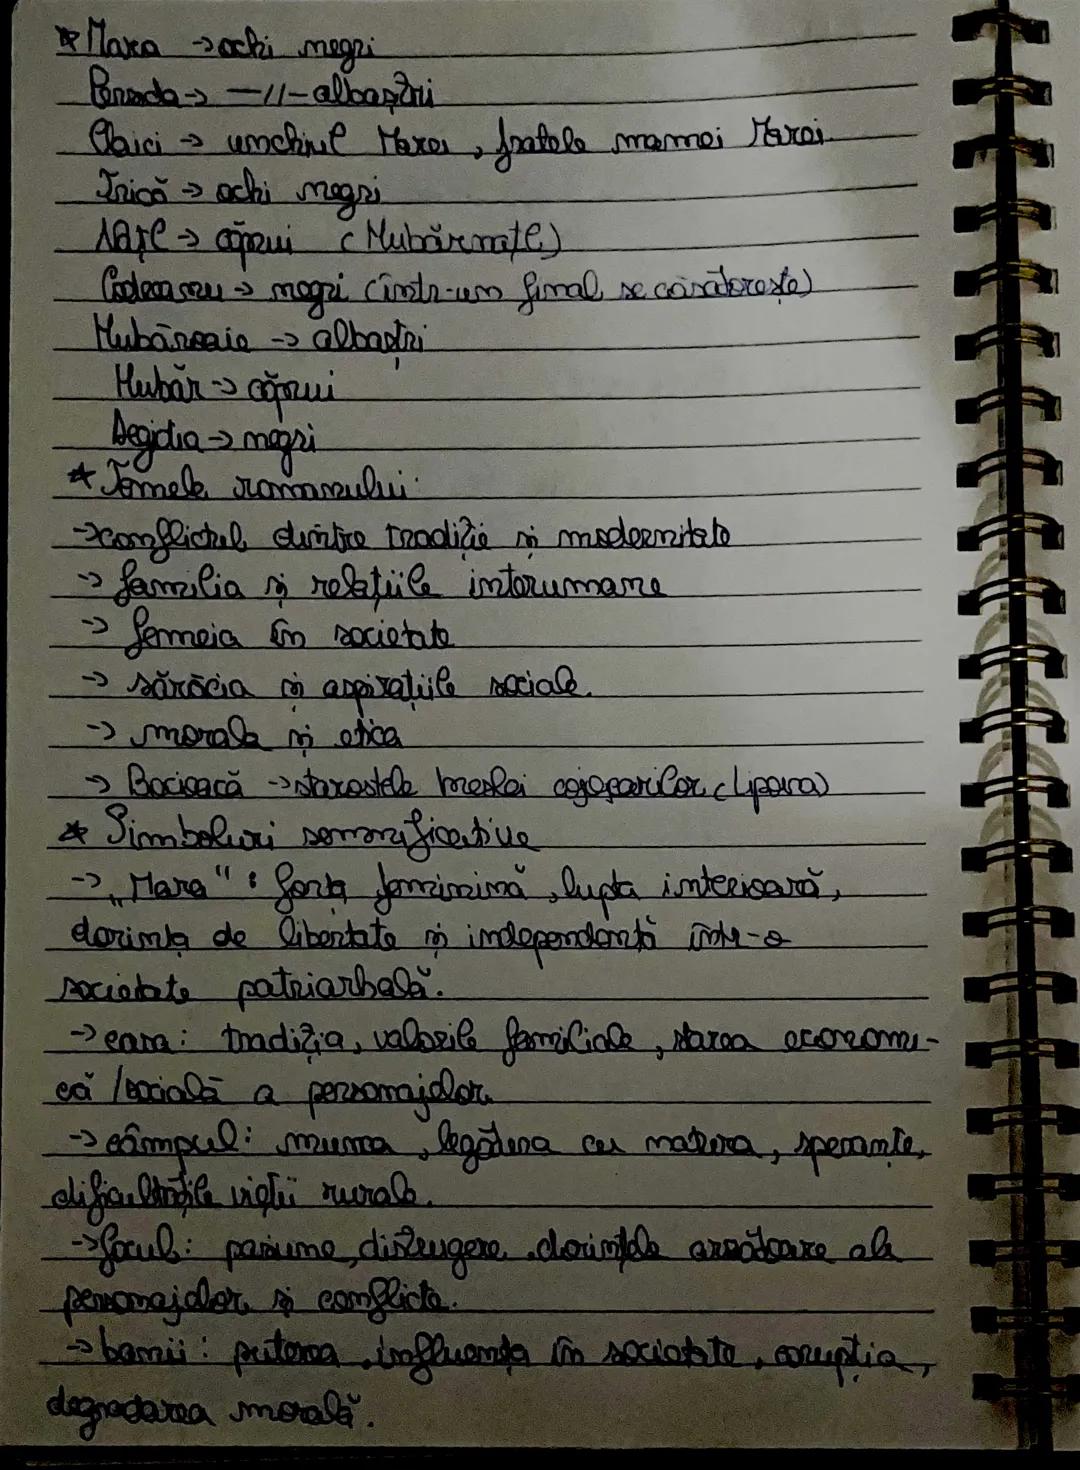 * Mara → ochi negri
Persida → —//— albaștri
Claici → unchiul Marei, fratele mamei Marei
Trică → ochi negri
NAȚL → căprui (Hubărnațl)
Codreanu → negri (într-un final se căsătorește)
Hubăroaie → albaștri
Hubăr → căprui
Aegidia → negri
* Temele romanului:
→ conflictul dintre tradiție și modernitate
→ familia și relațiile interumane
→ femeia în societate
→ sărăcia și aspirațiile sociale.
→ morala și etica
→ Bocioacă → starostele breslei cojocarilor (Lipova)
* Simboluri semnificative
→ „Mara” : forța feminină, lupta interioară,
dorința de libertate și independență într-o
societate patriarhală.
→ casa: tradiția, valorile familiale, starea economi-
că / socială a personajelor.
→ câmpul: munca, legătura cu natura, speranțe,
dificultățile vieții rurale.
→ focul: pasiune, distrugere, dorințele arzătoare ale
personajelor și conflicte.
→ banii: puterea, influența în societate, corupția,
degradarea morală.